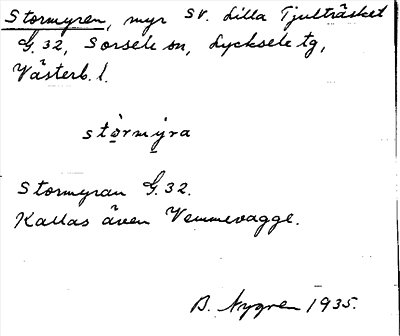 Stormyren, myr SV. Lilla Tjulträsket
G. 32, Sorsele sn, Lycksele tg,
Västerb. l.
stòrmýra
Stormyran G. 32.
Kallas även Vemmevagge.
B. Nygren 1935.